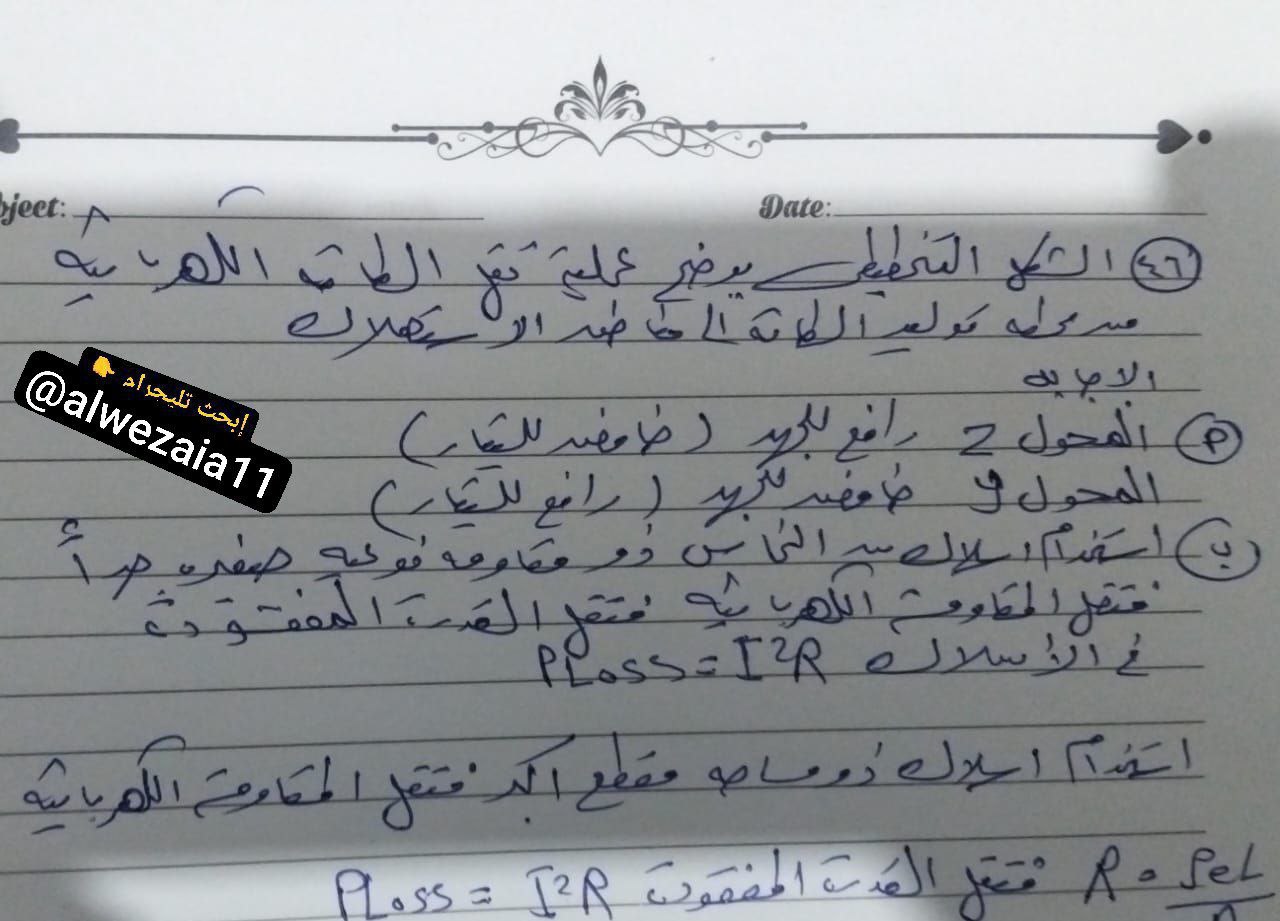 bject:
Date:
٤٦ الشكل التخطيطي يوضح عملية نقل الطاقة الكهربائية
من محطه توليد الطاقة إلى مناطق الاستهلاك
الاجابه
إبحث تليجرام 👇
@alwezaia11
أ المحول Z رافع للجهد (خافض للتيار)
المحول y خافض للجهد (رافع للتيار)
ب استخدام اسلاك من النحاس ذو مقاومه نوعيه صغيره جداً
فتقل المقاومة الكهربائية فتقل القدرة المفقودة
في الأسلاك PLoss = I²R
استخدام اسلاك ذو مساحه مقطع اكبر فتقل المقاومة الكهربائية
R = ρeL فتقل القدرة المفقودة PLoss = I²R